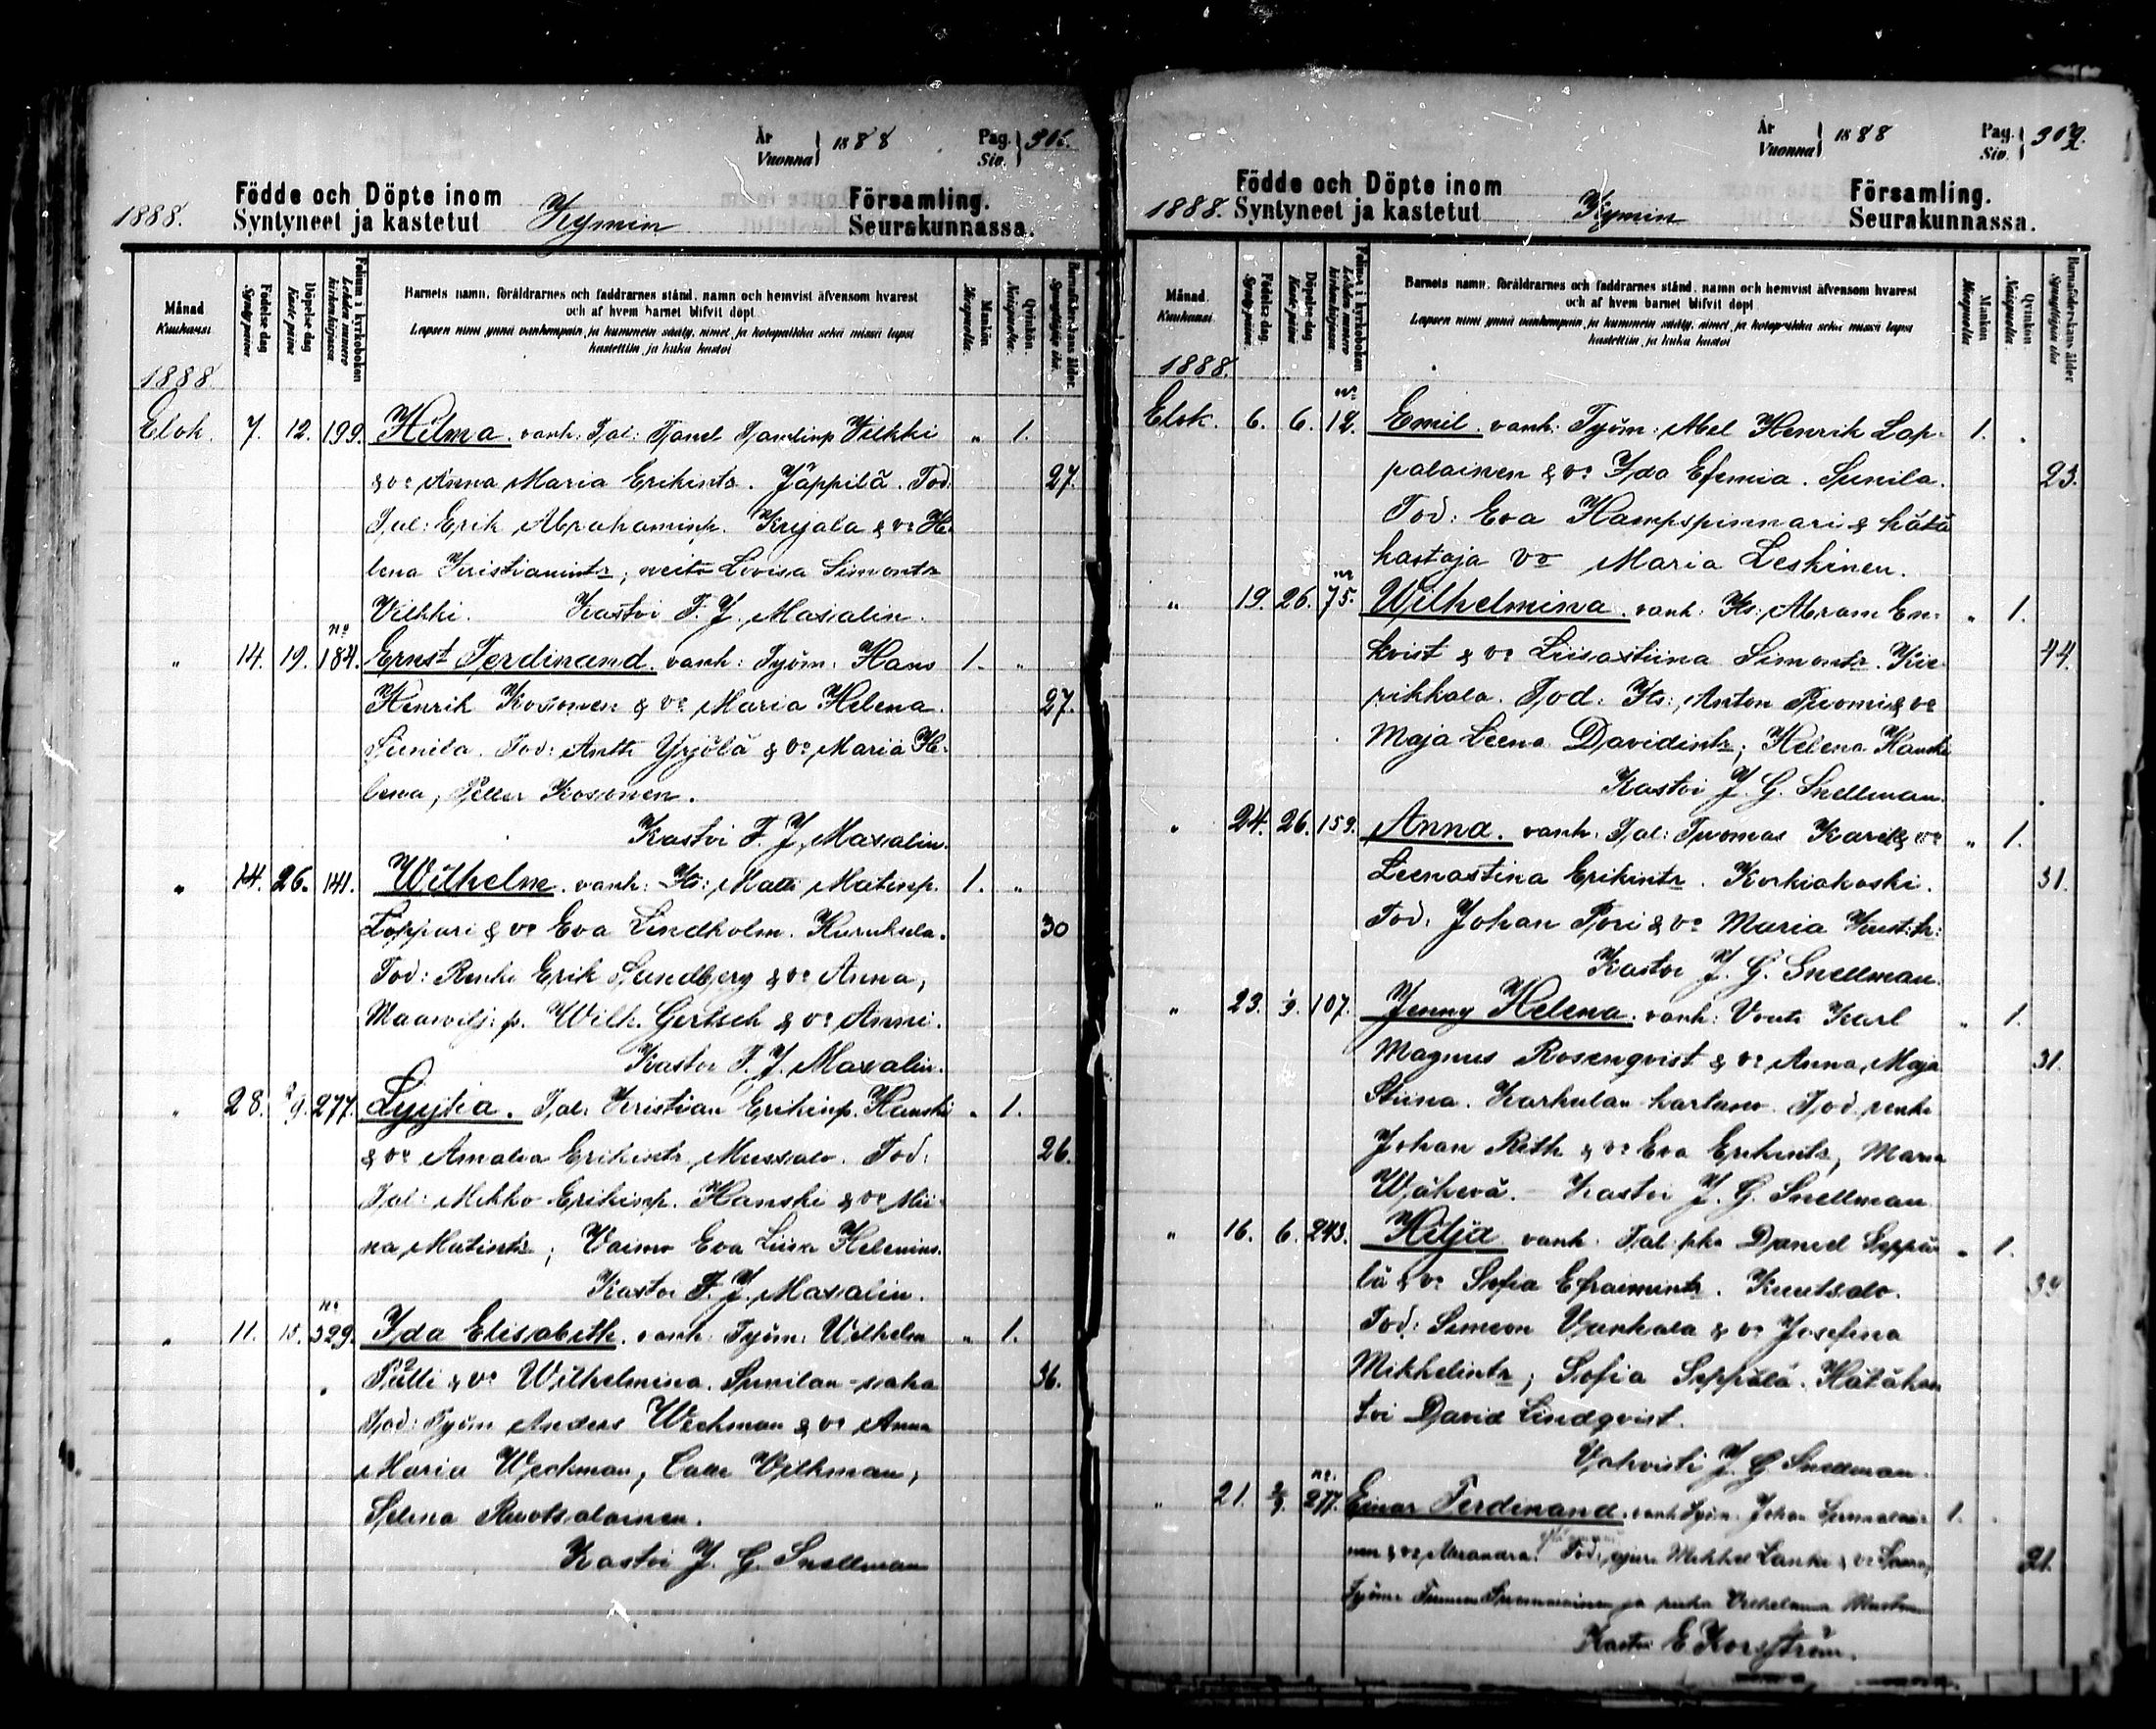 År
Vuonna 1888
Pag.
Siv.
Födde och Döpte inom Församling.
1888. Syntyneet ja kastetut Kymin Seurakunnassa.
Månad
Kuukausi
Födelse dag
Synty päivä
Döpelse dag
Kaste päivä
Folium i kyrkoboken
Lehden numero kirkonkirjassa.
Barnets namn, föräldrarnes och faddrarnes stånd, namn och hemvist äfvensom hvarest
och af hvem barnet blifvit döpt.
Lapsen nimi ynnä vanhempain, ja kummein sääty, nimet, ja kotopaikka sekä missä lapsi
kastettiin, ja kuka kastoi
Mankön.
Miespuolia.
Qvinkön.
Naispuolia.
1888
Elok. 7. 12. 199. Hilma. vanh: Tal: Vilkki „ 1.
& vo Anna Maria Erikintr. Jäppilä. Tod: 27.
Tal: Erik Abrahaminp. & vo He-
lena Kristianintr; neito Lovisa Simontr
Vilkki. Kastoi F. J. Maxalin.
„ 14. 19. no 184. Ernst Ferdinand. vanh: Työm: Hans 1. „
Henrik Kosonen & vo Maria Helena. 27.
Sunila. Tod: Antti Yrjölä & vo Maria He-
lena, Petter Kosonen.
Kastoi F. J. Maxalin.
„ 14. 26. 141. Wilhelm. vanh: Its: Matti Matinp. 1. „
Loppari & vo Eva Lindholm. Kurukula. 30
Tod: Renki Erik Sandberg & vo Anna,
Maawilj: p. Wilh. Gertsch & vo Anni.
Kastoi F. J. Maxalin.
„ 28. 2/9. 277. Lyytia. Tal: Kristian Erikinp. Hanski „ 1.
& vo Amalia Erikintr Mussalo. Tod: 26.
Tal: Mikko Erikinp. Hanski & vo Mii-
na Matintr; Vaimo Eva Liisa
Kastoi F. J. Maxalin.
„ 11. 15. no 329. Ida Elisabeth. vanh: Työm: Wilhelm „ 1.
Pulli & vo Wilhelmina. Sunilan-saha 36.
Tod: Työm Anders Weckman & vo Anna
Maria Weckman, Calle Vilkman,
Selma Ruotsalainen.
Kastoi J. G. Snellman
År
Vuonna 1888
Pag.
Siv. 309.
Födde och Döpte inom Församling.
1888. Syntyneet ja kastetut Kymin Seurakunnassa.
Månad.
Kuukausi
Födelse dag.
Synty päivä.
Döpelse dag.
Kaste päivä
Folium i kyrkoboken
Lehden numero kirkonkirjassa.
Barnets namn, föräldrarnes och faddrarnes stånd, namn och hemvist äfvensom hvarest
och af hvem barnet blifvit döpt.
Lapsen nimi ynnä vanhempain, ja kummein sääty, nimet, ja kotopaikka sekä missä lapsi
kastettiin, ja kuka kastoi
Mankön
Miespuolia
Qvinkön
Naispuolia.
Barnaföderskans ålder
1888.
Elok. 6. 6. no 12. Emil. vanh: Työm: Abel Henrik Lap- 1. „
palainen & vo Ida Efemia. Sunila. 23.
Tod: Eva Hampspinnari & hätä
kastaja vo Maria Leskinen.
„ 19. 26. no 75. Wilhelmina. vanh: Its: Abram En- „ 1.
kvist & vo Liisastiina Simontr. Kie- 44.
rikkala. Tod: Its: Anton Tuomi & vo
Maja Leena Davidintr; Helena Hanski
Kastoi J. G. Snellman.
„ 24. 26. 159. Anna. vanh: Tal: Tuomas & vo „ 1.
Leenastina Erikintr. Korkiakoski. 31.
Tod: Johan Pori & vo Maria
Kastoi J. G. Snellman.
„ 23. 1/9. 107. Jenny Helena. vanh: Vouti Karl „ 1.
Magnus Rosenqvist & vo Anna Maja 31.
Stiina. Karhulan kartano. Tod: renki
Johan Rith & vo Eva Erikintr, Maria
Wäkevä. Kastoi J. G. Snellman
„ 16. 6. 243. Hilja vanh: Tal: pka Daniel Seppä- „ 1.
lä & vo Sofia Efraimintr. Kuutsalo. 39
Tod: Simeon Vanhala & vo Josefina
Mikkelintr; Sofia Seppälä. Hätäkas
toi David Lindqvist.
Vahvisti J. G. Snellman.
„ 21. 2/9. no. 277. Einar Ferdinand. vanh: Työm: Johan 1. „
nen & vo Alexandra. Tod: Mikkel Lanki & vo 21.
Työm: ja piika Vilhelmina
Kastoi E. Korsström.